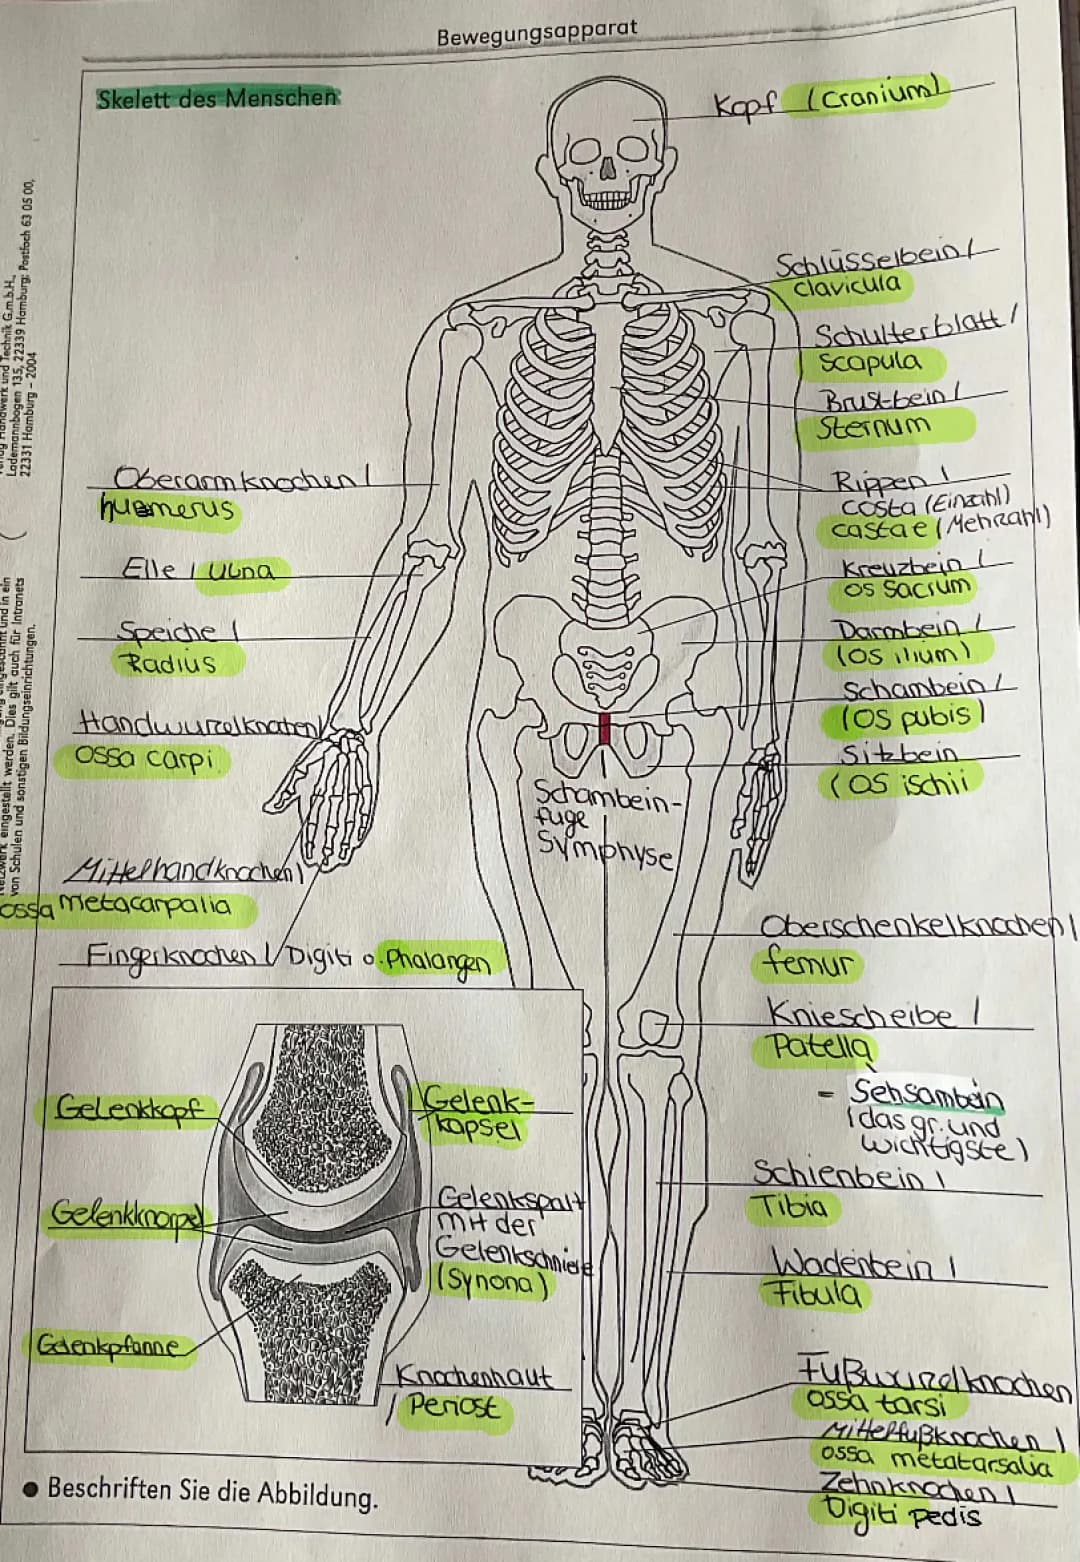 Bewegungsapparat
Skelett des Menschen
Kopf (Cranium)
Schlüsselbein /
clavicula
Schulterblatt /
Scapula
Brustbein /
Sternum
Rippen /
costa (Einzahl)
castae (Mehrzahl)
Kreuzbein /
os sacrum
Darmbein /
(os ilium)
Schambein /
(os pubis)
Sitzbein
(os ischii
Oberarmknochen /
humerus
Elle / Ulna
Speiche /
Radius
Handwurzelknochen /
ossa carpi
Mittelhandknochen /
ossa metacarpalia
Fingerknochen / Digiti o. Phalangen
Schambein-
fuge
Symphyse
Oberschenkelknochen /
femur
Kniescheibe /
Patella
- Sehsambein
(das gr. und
wichtigste)
Schienbein /
Tibia
Wadenbein /
Fibula
Fußwurzelknochen
ossa tarsi
Mittelfußknochen /
ossa metatarsalia
Zehnknochen /
Digiti pedis
Gelenkkopf
Gelenkknorpel
Gelenkpfanne
Gelenk-
kapsel
Gelenkspalt
mit der
Gelenkschmiere
(Synona)
Knochenhaut
/ Periost
Beschriften Sie die Abbildung.
Verlag Handwerk und Technik G.m.b.H.,
Lademannbogen 135, 22339 Hamburg; Postfach 63 05 00,
22331 Hamburg – 2004
eingescannt und in ein
Netzwerk eingestellt werden. Dies gilt auch für Intranets
von Schulen und sonstigen Bildungseinrichtungen.